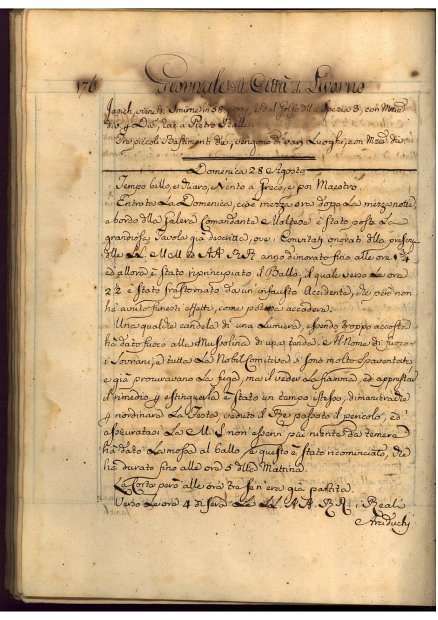 176 Giornale della Città di Livorno
Janich, viene di Smirne in 58 giorni, e dal Golfo della Spezia
dio, q. Dio, rac. a Pietro Ralli
Tre piccoli Bastimenti div., vengono di varj Luoghi, con Merc. div.
Domenica 28 Agosto
Tempo bello, e chiaro, Vento a Greco, e poi Maestro.
Entrate Le Domenica, cioè mezza ora doppo La mezzanotte
a bordo della Galera Comandante Maltese è stata posta La
grandiosa Tavola già descritta, ove i Convitati onorati della presen
delle LL. MM. ed AA. RR. anno dimorato fino alle ore 1 3/4
ed allora è stato riprincipiato il Ballo, il quale verso Le ore
2 1/2 è stato frastornato da un infausto Accidente, che però non
ha avuto funesti effetti, come poteva accadere.
Una qualche candela di una Lumiera, essendo troppo accosta
ha dato fuoco alle Mussoline di una tenda. Al Nome di fuoco
i Sovrani, e tutta La Nobil Comitiva si sono molto spaventate
e già procuravano La fuga, ma il veder La fiamma, ed apprestar
il rimedio, e estinguerla è stato un tempo istesso, dimodochè
riordinare La Festa, veduto il Re passato il pericolo, ed
assicuratosi La M. S. non esservi più niente da temere
ha dato La mossa al ballo, e questo è stato ricominciato, che
ha durato fino alle ore 5 della Mattina.
La Corte però alle ore tre se n'era già partita.
Verso Le ore 4 di sera Le LL. AA. RR. i Reali
Arciduchi